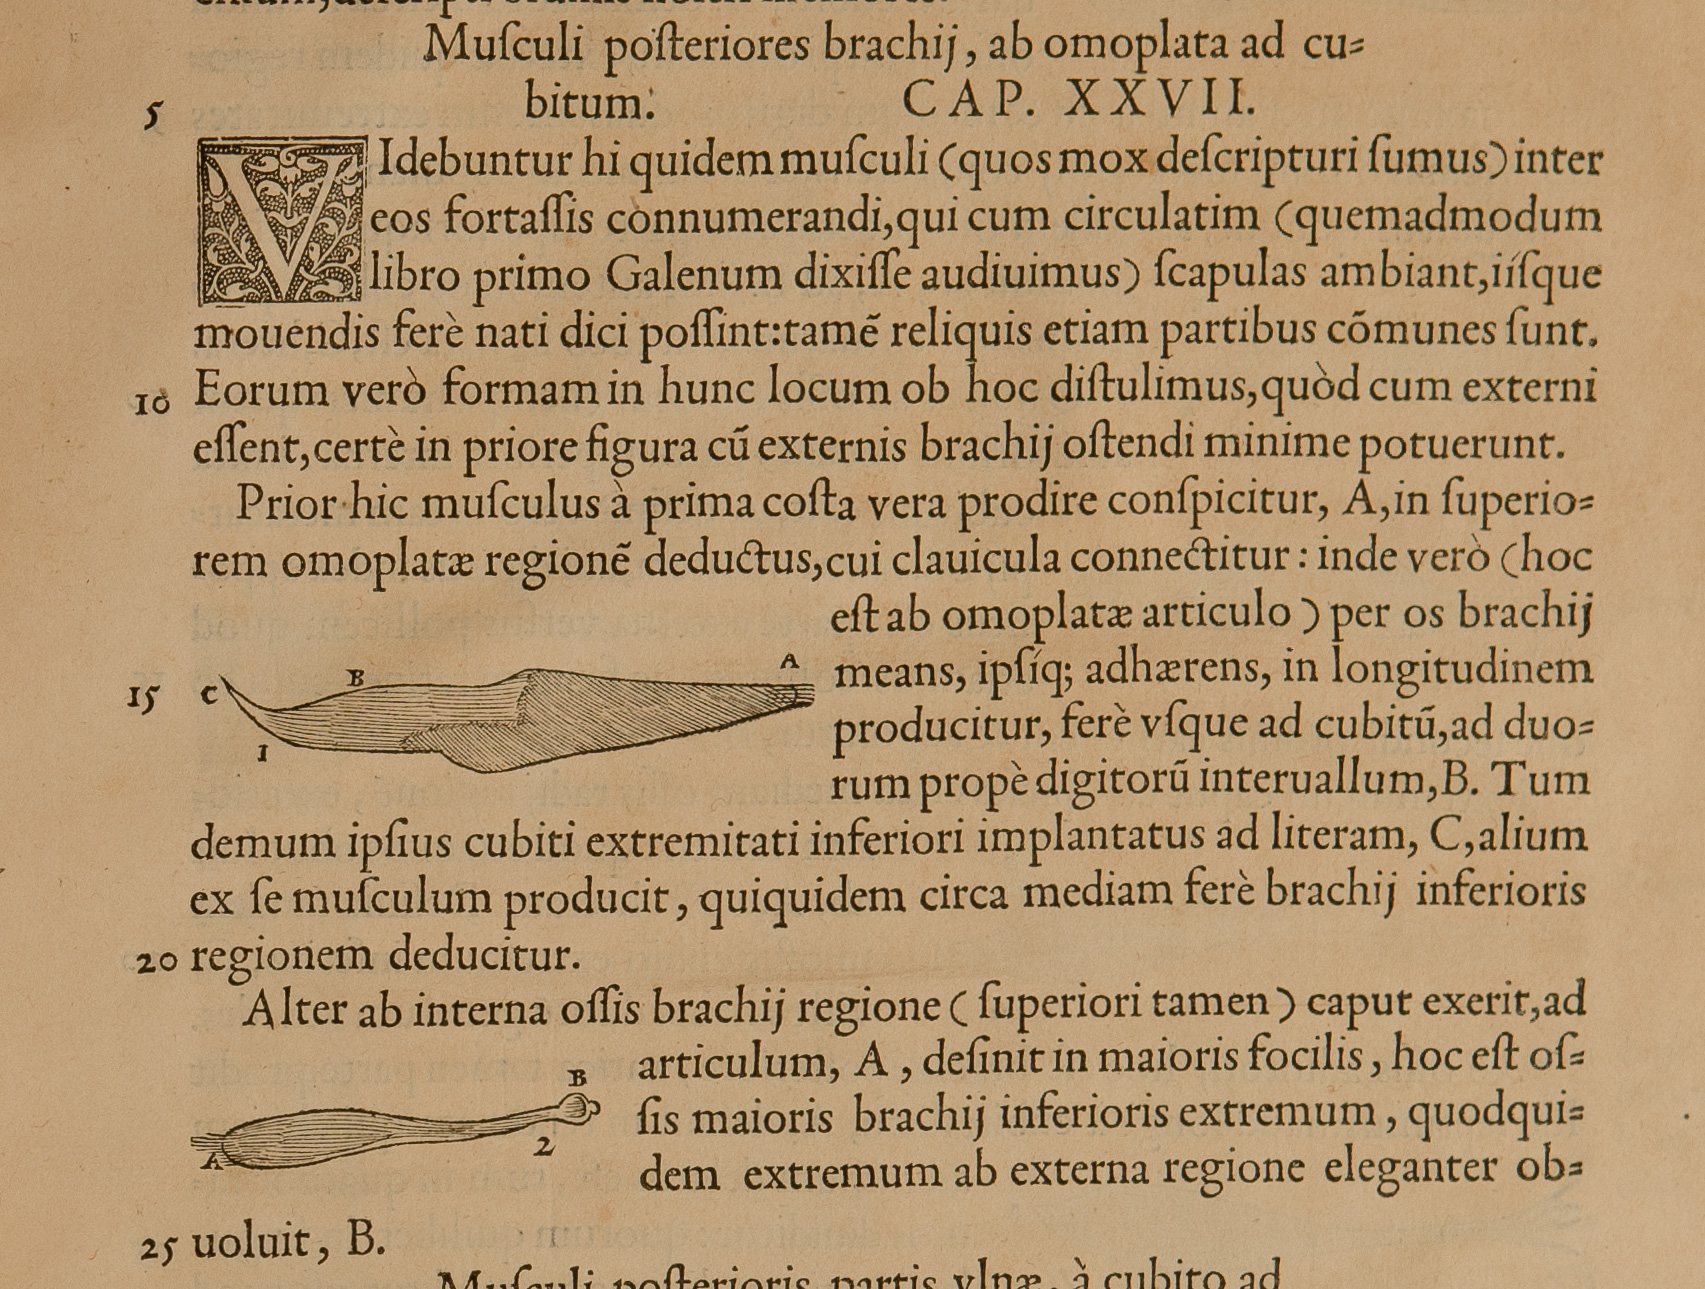 Muſculi poſteriores brachij, ab omoplata ad cu=
bitum. CAP. XXVII.
5
VIdebuntur hi quidem muſculi (quos mox deſcripturi ſumus) inter
eos fortaſſis connumerandi, qui cum circulatim (quemadmodum
libro primo Galenum dixiſſe audiuimus) ſcapulas ambiant, iiſque
mouendis ferè nati dici poſſint: tamẽ reliquis etiam partibus cõmunes ſunt.
10 Eorum verò formam in hunc locum ob hoc diſtulimus, quòd cum externi
eſſent, certè in priore figura cũ externis brachij oſtendi minime potuerunt.
Prior hic muſculus à prima coſta vera prodire conſpicitur, A, in ſuperio=
rem omoplatæ regionẽ deductus, cui clauicula connectitur: inde verò (hoc
eſt ab omoplatæ articulo) per os brachij
15 C B A means, ipſíq; adhærens, in longitudinem
1 producitur, ferè vſque ad cubitũ, ad duo=
rum propè digitorũ interuallum, B. Tum
demum ipſius cubiti extremitati inferiori implantatus ad literam, C, alium
ex ſe muſculum producit, quiquidem circa mediam ferè brachij inferioris
20 regionem deducitur.
Alter ab interna oſſis brachij regione (ſuperiori tamen) caput exerit, ad
articulum, A, deſinit in maioris focilis, hoc eſt oſ=
B
ſis maioris brachij inferioris extremum, quodqui=
A 2
dem extremum ab externa regione eleganter ob=
25 uoluit, B.
Muſculi poſterioris partis vlnæ, à cubito ad